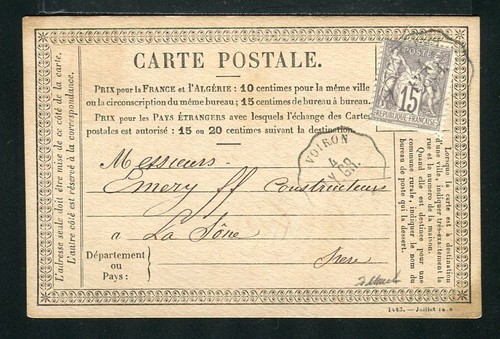 CARTE POSTALE.
PRIX pour la FRANCE et l'ALGÉRIE: 10 centimes pour la même ville
ou la circonscription du même bureau; 15 centimes de bureau à bureau.
PRIX pour les PAYS ÉTRANGERS avec lesquels l'échange des Cartes
postales est autorisé : 15 ou 20 centimes suivant la destination.
POSTE
15
REPUBLIQUE FRANÇAISE
VOIRON
4
Messieurs
Emery ff Constructeurs
a La Sône
Département
ou
Pays:
Isere
L'adresse seule doit être mise de ce côté de la carte.
L'autre côté est réservé à la correspondance.
Lorsque la carte est à destination
d'une ville, indiquer très-exactement la
rue et le numéro de la maison.
Quand elle est destinée pour une
commune rurale, indiquer le nom du
bureau de poste qui la dessert.
Juillet